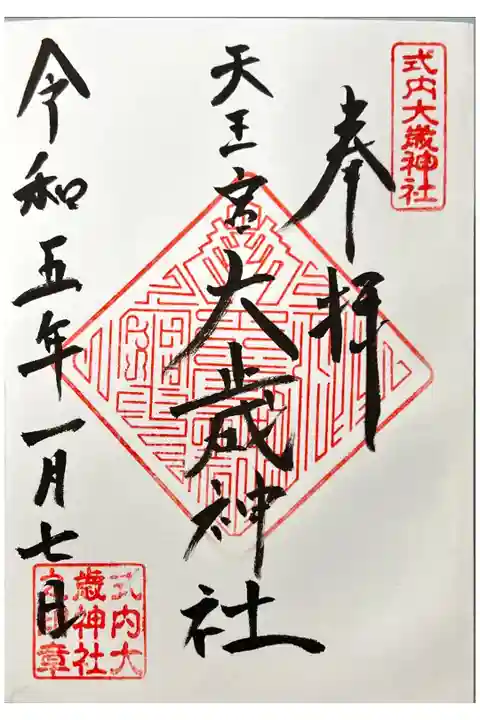 式内大歳神社
奉拝
天王宮大歳神社
令和五年一月七日
式内大
歳神社